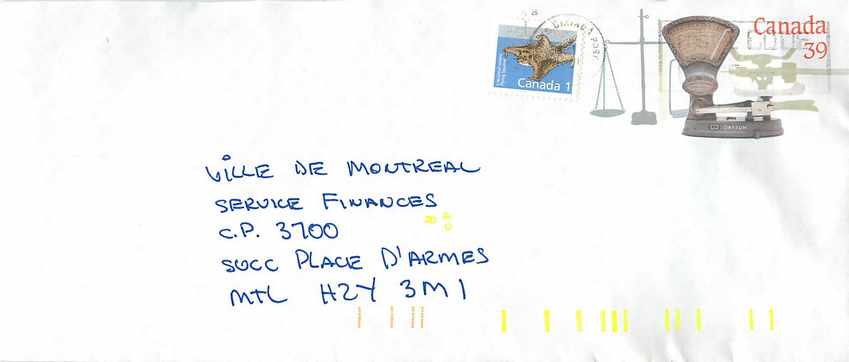 Canada
39
Canada 1
VILLE DE MONTREAL
SERVICE FINANCES
C.P. 3700
SUCC PLACE D'ARMES
MTL H2Y 3M1